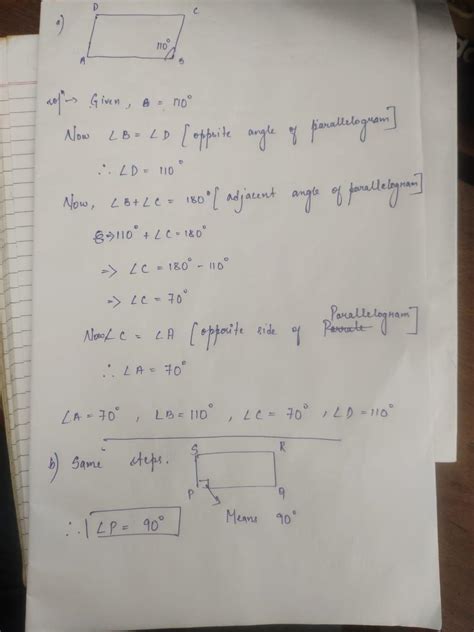 a)
D C
110°
A B
solⁿ → Given, B = 110°
Now ∠B = ∠D [opposite angle of parallelogram]
∴ ∠D = 110°
Now, ∠B + ∠C = 180° [adjacent angle of parallelogram]
⇒ 110° + ∠C = 180°
=> ∠C = 180° - 110°
=> ∠C = 70°
Now ∠C = ∠A [opposite side of Parallelogram]
∴ ∠A = 70°
∠A = 70° , ∠B = 110° , ∠C = 70° , ∠D = 110°
b) Same steps.
S R
P Q
Means 90°
∴ ∠P = 90°